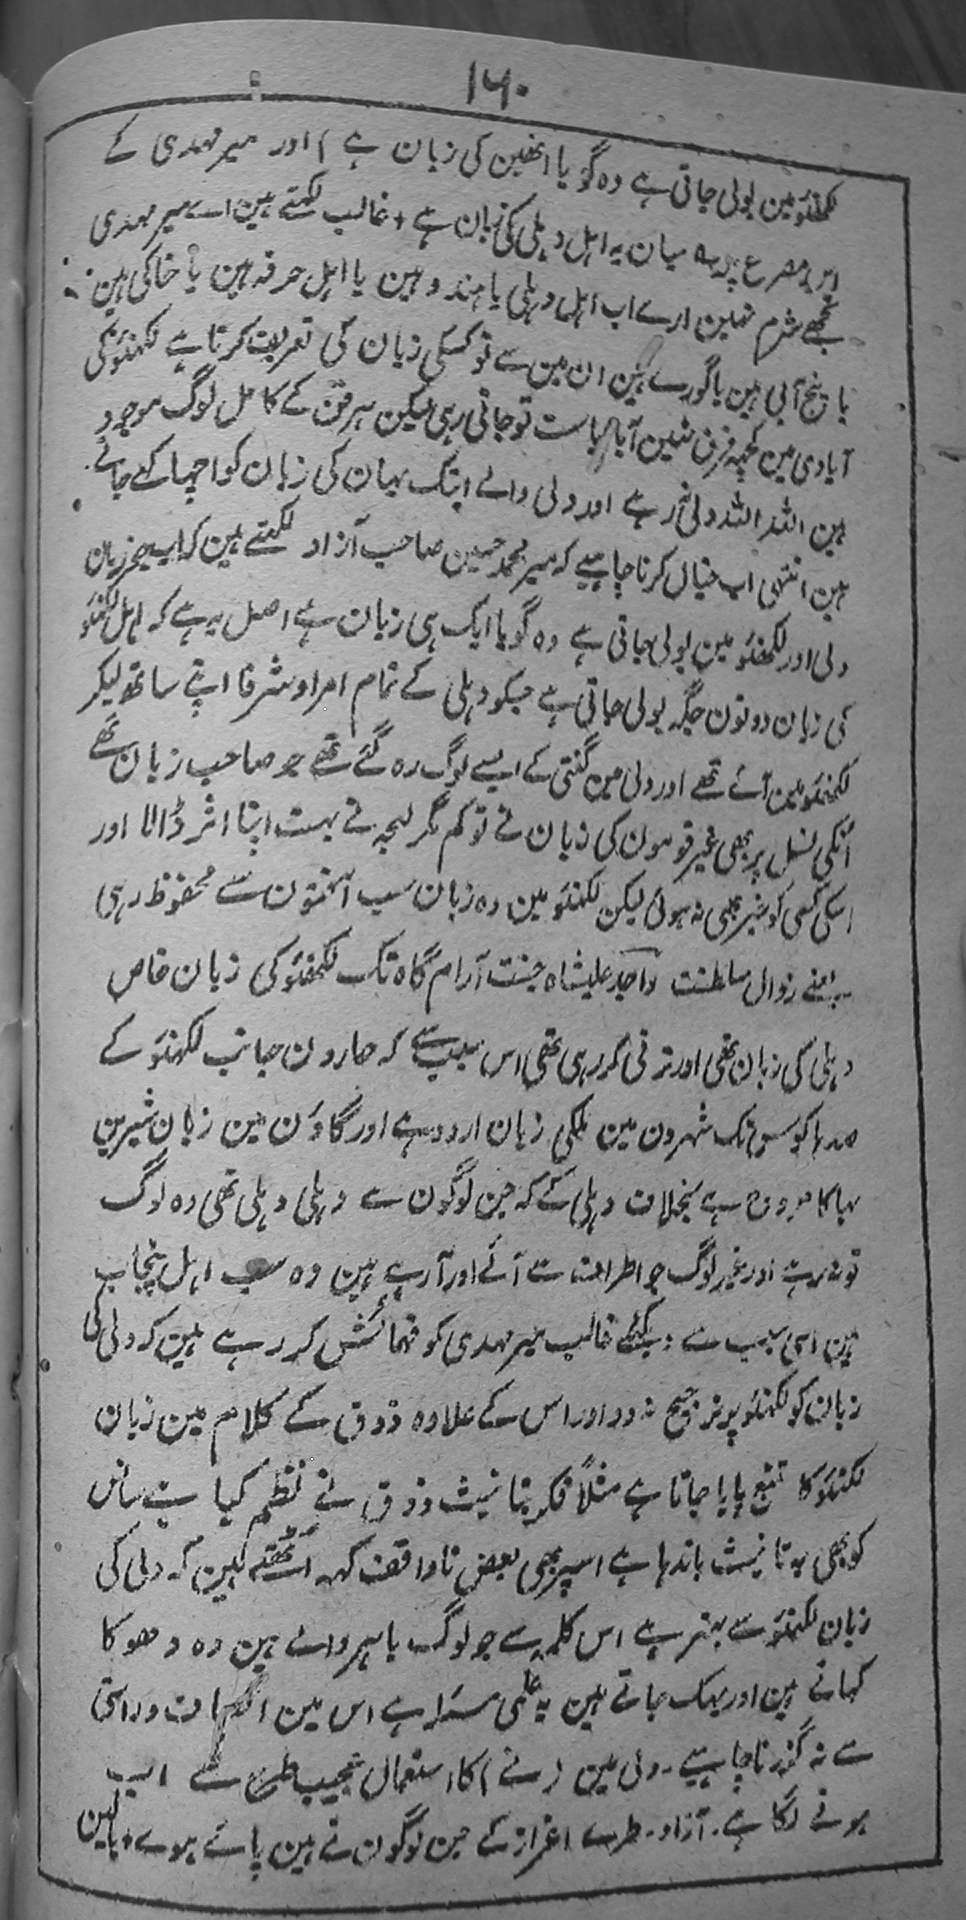 ۱۶۰
لکھنؤ مین بولی جاتی ہے وہ گویا انھین کی زبان ہے ) اور میر مہدی کے
اس مصرع پر ہ میان یہ اہل دہلی کی زبان ہے + غالب لکھتے ہین اے میر مہدی
تجھے شرم نہین ارے اب اہل دہلی یا ہندو ہین یا اہل حرفہ ہین یا خاکی ہین
یا پنجابی ہین یا گورے ہین ان مین سے تو کسکی زبان کی تعریف کرتا ہے لکھنؤ کی
آبادی مین کچھ فرق نہین آیا ریاست تو جاتی رہی لیکن ہر فن کے کامل لوگ موجود
ہین اللہ اللہ دلی نہ رہے اور دلی والے ابتک یہان کی زبان کو اچھا کہے جاتے
ہین انتہی اب خیال کرنا چاہیے کہ میر محمد حسین صاحب آزاد لکھتے ہین کہ اب جو زبان
دلی اور لکھنؤ مین بولی جاتی ہے وہ گویا ایک ہی زبان ہے اصل یہ ہے کہ اہل لکھنؤ
کی زبان دونون جگہ بولی جاتی ہے جسکو دہلی کے تمام امرا و شرفا اپنے ساتھ لیکر
لکھنؤ مین آئے تھے اور دلی مین گنتی کے ایسے لوگ رہ گئے تھے جو صاحب زبان تھے
انکی نسل پر بھی غیر قومون کی زبان نے تو کم مگر لہجہ نے بہت اپنا اثر ڈالا اور
اسکی کسی کو خبر بھی نہ ہوئی لیکن لکھنؤ مین وہ زبان سب آفتون سے محفوظ رہی
یعنے زوال سلطنت واجد علیشاہ جنت آرام گاہ تک لکھنؤ کی زبان خاص
دہلی کی زبان تھی اور ترقی کر رہی تھی اس سبب سے کہ چارون جانب لکھنؤ کے
صدہا کوس تک شہرون مین ملکی زبان اردو ہے اور گاؤن مین زبان شیرین
بہاکا مروج ہے بخلاف دہلی کے کہ جن لوگون سے دہلی دہلی تھی وہ لوگ
تو نہ رہے اور غیر لوگ جو اطراف سے آئے اور آرہے ہین وہ سب اہل پنجاب
ہین اسی سبب سے دیکھئے غالب میر مہدی کو فہمائش کر رہے ہین کہ دلی کی
زبان کو لکھنؤ پر ترجیح نہ دو اور اس کے علاوہ ذوق کے کلام مین زبان
لکھنؤ کا تتبع پایا جاتا ہے مثلاً فکر بتانیث ذوق نے نظم کیا ہے سانس
کو بھی بہ تانیث باندہا ہے اسپر بھی بعض ناواقف کہہ اٹھتے ہین کہ دلی کی
زبان لکھنؤ سے بہتر ہے اس کلمہ سے جو لوگ باہر والے ہین وہ دھوکا
کہاتے ہین اور بہک جاتے ہین یہ علمی مسئلہ ہے اس مین انصاف و راستی
سے نہ گزرنا چاہیے ۔ دلی مین ( نے ) کا استعمال عجیب طرح سے اب
ہونے لگا ہے ۔ آزاد ۔ طرے اعزاز کے جن لوگون نے ہین پائے ہوے +